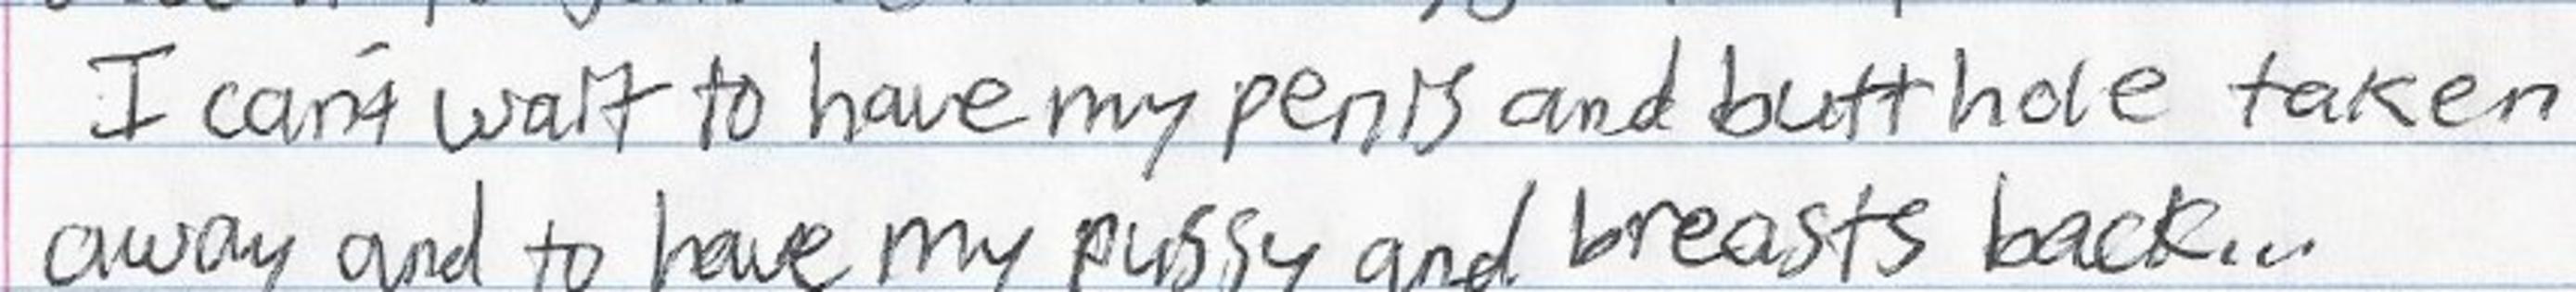 I can't wait to have my penis and butthole taken
away and to have my pussy and breasts back...